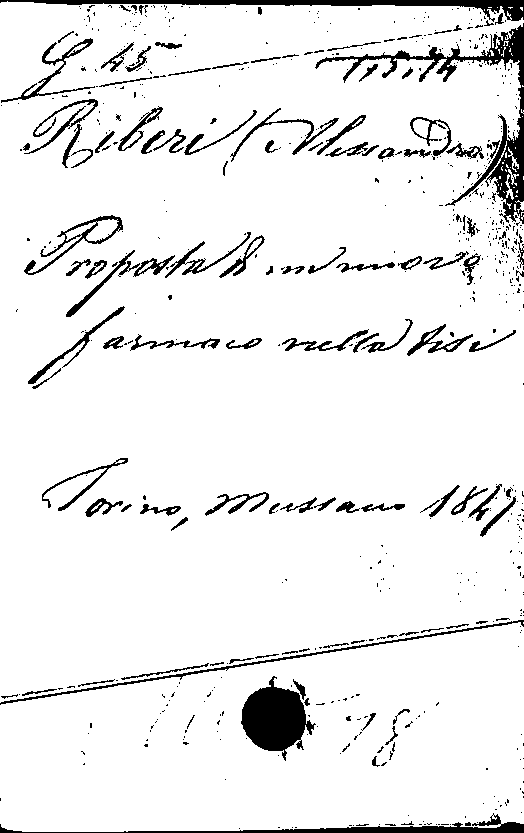 G. 45
1,5,74
Riberi (Alessandro)
Proposta di un nuovo
farmaco nella tisi
Torino, Mussano 1847
78